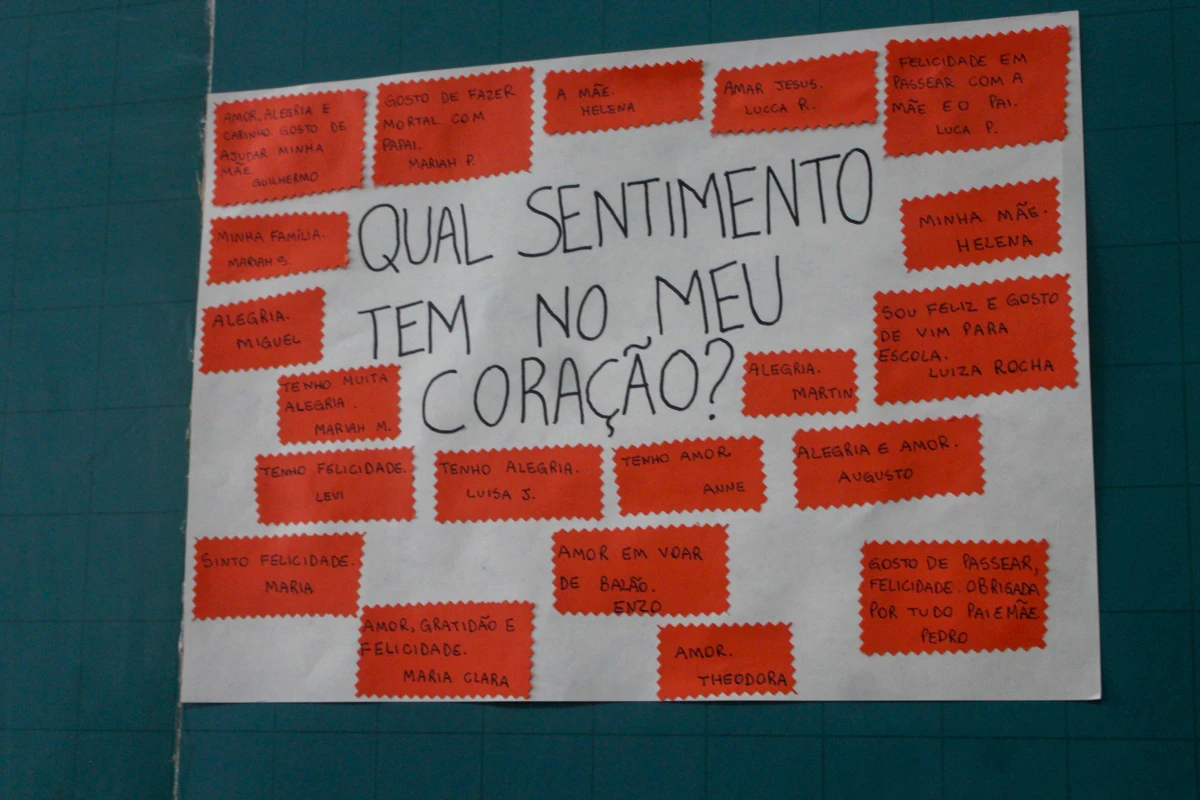 AMOR, ALEGRIA E
CARINHO. GOSTO DE
AJUDAR MINHA
MÃE.
GUILHERMO
GOSTO DE FAZER
MORTAL COM
PAPAI.
MARIAH P.
A MÃE.
HELENA
AMAR JESUS.
LUCCA R.
FELICIDADE EM
PASSEAR COM A
MÃE E O PAI.
LUCA P.
QUAL SENTIMENTO
TEM NO MEU
CORAÇÃO?
MINHA FAMÍLIA.
MARIAH S.
MINHA MÃE.
HELENA
ALEGRIA.
MIGUEL
SOU FELIZ E GOSTO
DE VIM PARA
ESCOLA.
LUIZA ROCHA
TENHO MUITA
ALEGRIA.
MARIAH M.
ALEGRIA.
MARTIN
TENHO FELICIDADE.
LEVI
TENHO ALEGRIA.
LUISA J.
TENHO AMOR
ANNE
ALEGRIA E AMOR.
AUGUSTO
SINTO FELICIDADE.
MARIA
AMOR EM VOAR
DE BALÃO.
ENZO
GOSTO DE PASSEAR,
FELICIDADE. OBRIGADA
POR TUDO PAI E MÃE
PEDRO
AMOR, GRATIDÃO E
FELICIDADE.
MARIA CLARA
AMOR.
THEODORA